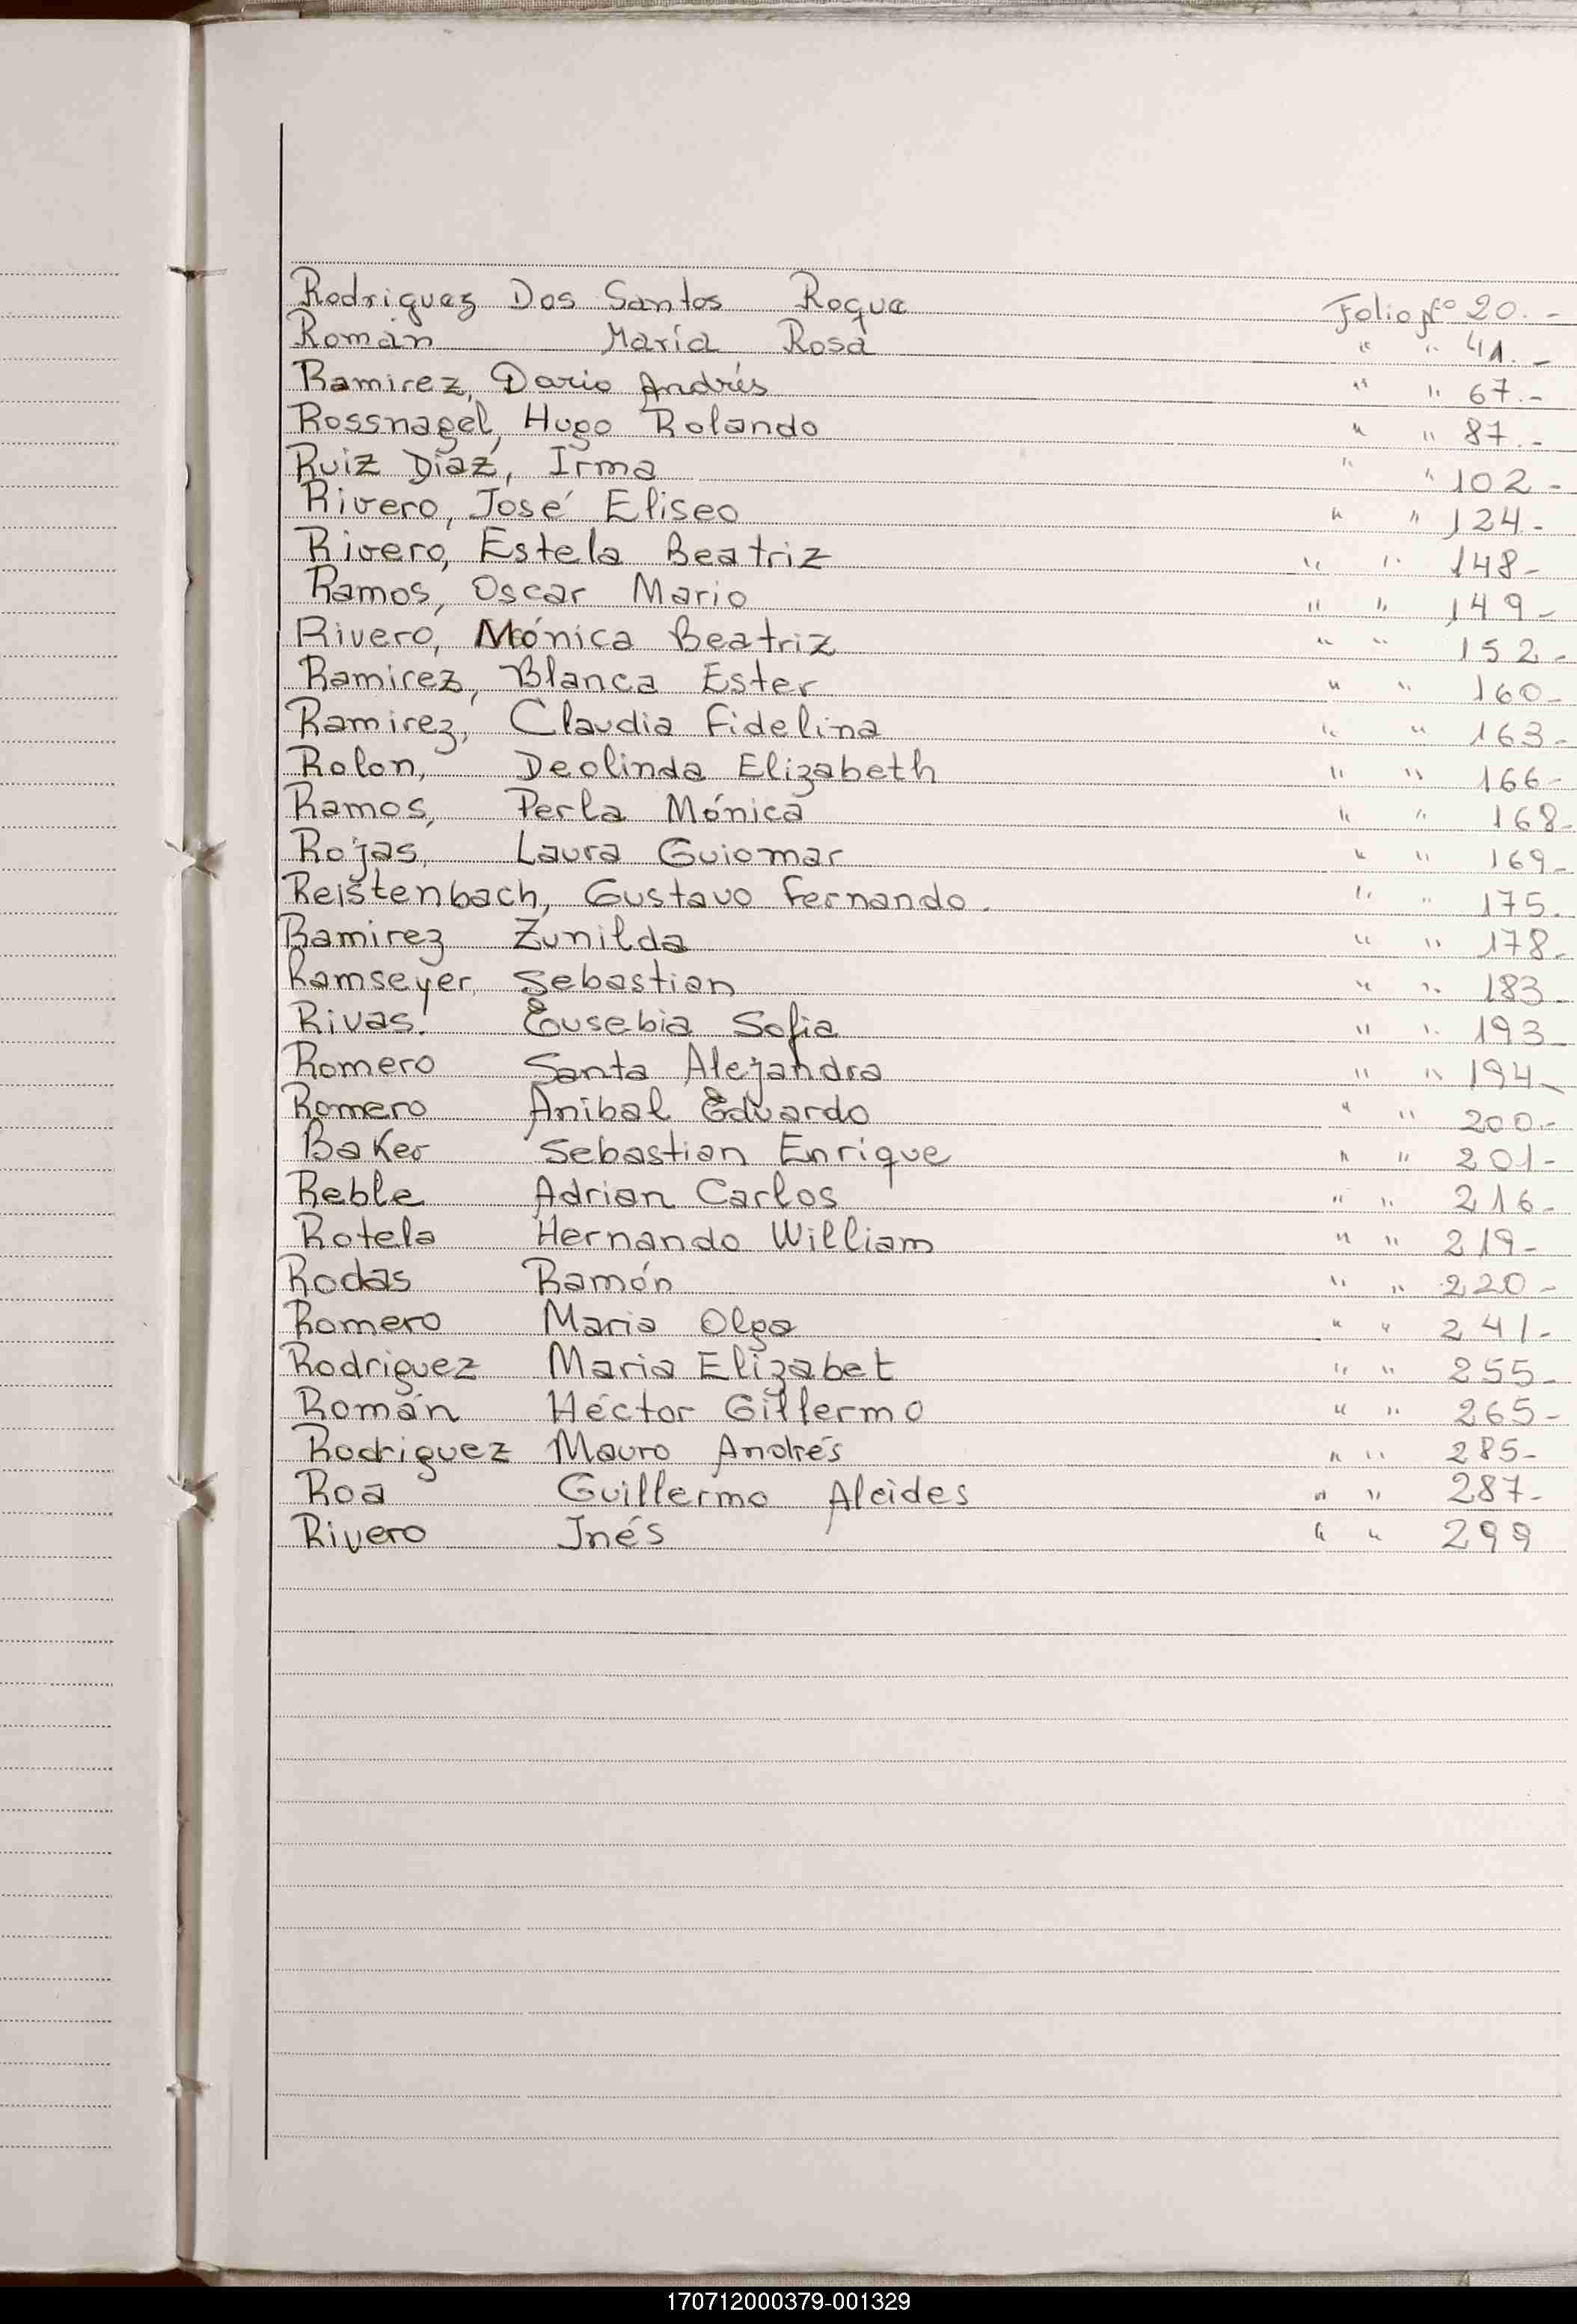 Rodriguez Dos Santos Roque Folio Nº 20.-
Román María Rosa " " 41.-
Ramirez, Dario Andrés " " 67.-
Rossnagel, Hugo Rolando " " 87.-
Ruiz Díaz, Irma " " 102-
Rivero, José Eliseo " " 124-
Rivero, Estela Beatriz " " 148-
Ramos, Oscar Mario " " 149-
Rivero, Mónica Beatriz " " 152-
Ramirez, Blanca Ester " " 160-
Ramirez, Claudia Fidelina " " 163-
Rolon, Deolinda Elizabeth " " 166-
Ramos, Perla Mónica " " 168-
Rojas, Laura Guiomar " " 169-
Reistenbach, Gustavo Fernando. " " 175.
Ramirez Zunilda " " 178-
Ramseyer Sebastian " " 183-
Rivas. Eusebia Sofia " " 193-
Romero Santa Alejandra " " 194-
Romero Anibal Eduardo " " 200.-
Baker Sebastian Enrique " " 201-
Reble Adrian Carlos " " 216-
Rotela Hernando William " " 219-
Rodas Ramón " " 220-
Romero Maria Olga " " 241-
Rodriguez Maria Elizabet " " 255-
Román Héctor Gillermo " " 265-
Rodriguez Mauro Andrés " " 285-
Roa Guillermo Alcides " " 287-
Rivero Inés " " 299
170712000379-001329